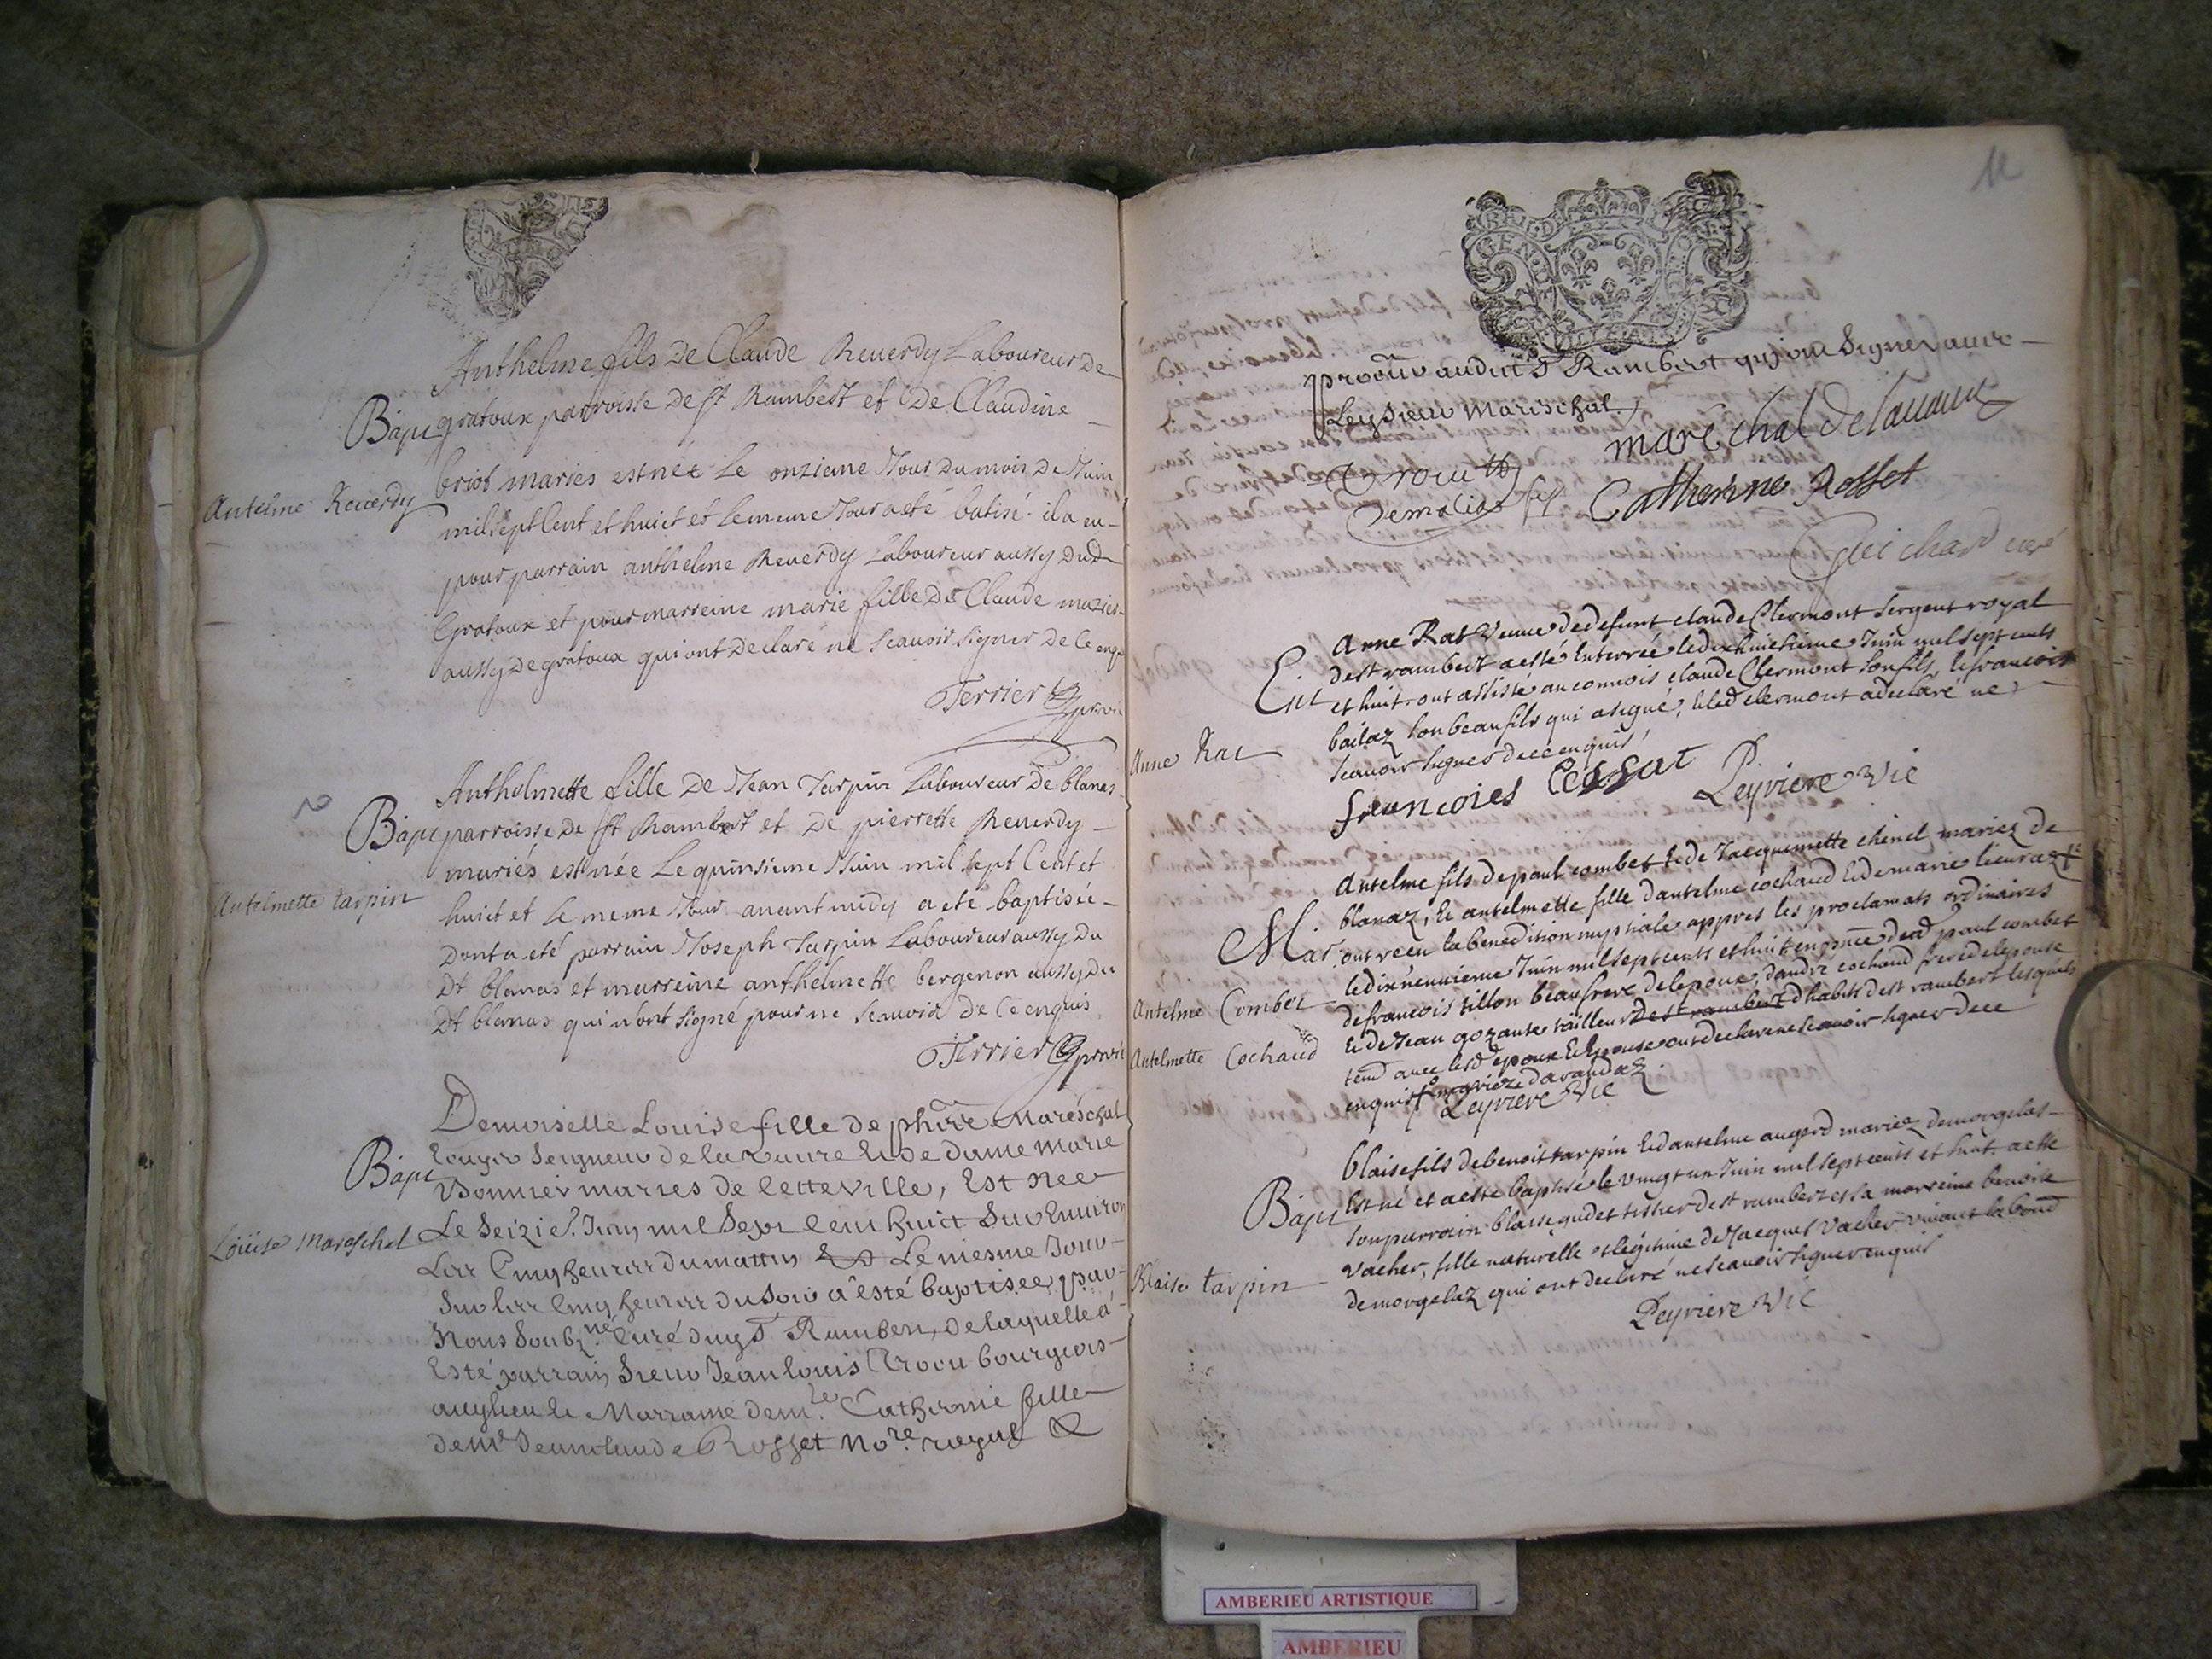 Anthelme fils De Claude Reuerdy Laboureur de
Bapt gratoux parroisse De st Rambert et De Claudine
briot mariés est née Le onzieme Jour du mois De Juin
Antelme Reuerdy
mil sept Cent et huict et le meme Jour a eté batisé. il a eu
pour parrain anthelme Reuerdy Laboureur aussy Dud
Gratoux et pour marreine marie fille De Claude
aussy De gratoux qui ont Declaré ne Scauoir signer De Ce enq
Terrier
Anthelmette fille De Jean Tarpin Laboureur De blanas
Bapt parroisse De st Rambert et De pierrette Reuerdy
mariés est née Le quinsieme Juin mil sept Cent et
Antelmette tarpin
huict et le meme Jour auant midy a eté baptisée
Dont a eté parrain Joseph Tarpin Laboureur aussy Du
Dt blanas et marreine anthelmette bergeron aussy du
Dt blanas qui n'ont signé pour ne Scauoir De Ce enquis
Terrier
Demoiselle Louise fille de Maréschal
Escuyer Seigneur de la Vaure et De dame Marie
Bapt
Bonnier maries de cette ville, Est nee
Le Seizie. Juin mil Sept Cent huict Sur Enuiron
Louise Maraschel
Les Cinq heures du mattin Le mesme Jour
Sur les Cinq heures du Soir a esté baptisee, par
Nous Soubzne Curé du St Rambert, de laquelle a
Esté parrain Sieur Jean Louis Trocu bourgeois
audt lieu et Marraine demle Catherine fille
de Mr Jean Claude Rosset Nore royal
12
audit St Rambert qui ont Signé auec
Ley Sieur Marischal.
maréchal Delauaure
Catherine Rosset
Guichard curé
Anne Rat Veuue de defunt claude Clermont Sergent royal
Ent
de st rambert a esté Enterrée le dixhuictieme Juin mil sept cents
et huit. ont assisté au conuois claude Clermont Son fils, et francois
Anne Rat
Son beau fils qui a signé, et led clermont a declaré ne
Scauoir signer de ce enquis
francoies Leyriere Vic
Antelme fils de paul combet et de Jacquemette chinel mariez de
blanaz, et antelmette fille dantelme cochaud et de marie
Mar. ont receu la benediction nuptiale appres les proclamats ordinaires
le dixneuuieme Juin mil sept cents et huit en pnce dud paul combet
Antelme Combet
de francois tillon beaufrere de lepoux, dandré cochaud frere de lepouse
et de Jean gozante tailleur de st rambert d'habits de st rambert lesquels
Antelmette Cochaud
auec lesd epoux et Epouse ont declaré ne Scauoir signer de ce
enquis mariez d'arandaz
Leyriere Vic
blaise fils de benoit tarpin et dantelme augerd mariez de morgelas
Bapt Est né et a esté baptisé le vingt un Juin mil sept cents et huit. a esté
son parrain blaise gudet tissier de st rambert et sa marreine benoite
vacher, fille naturelle et legitime de Jacques vacher viuant
Blaise tarpin
de morgelaz qui ont declaré ne Scauoir signer enquis
Leyriere Vic
AMBERIEU ARTISTIQUE
AMBERIEU